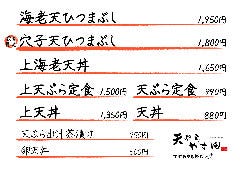 海老天ひつまぶし 1,950円
穴子天ひつまぶし 1,800円
上海老天丼 1,650円
上天ぷら定食 1,500円 天ぷら定食 990円
上天丼 1,350円 天丼 880円
天ぷら出汁茶漬け 750円
卵天丼